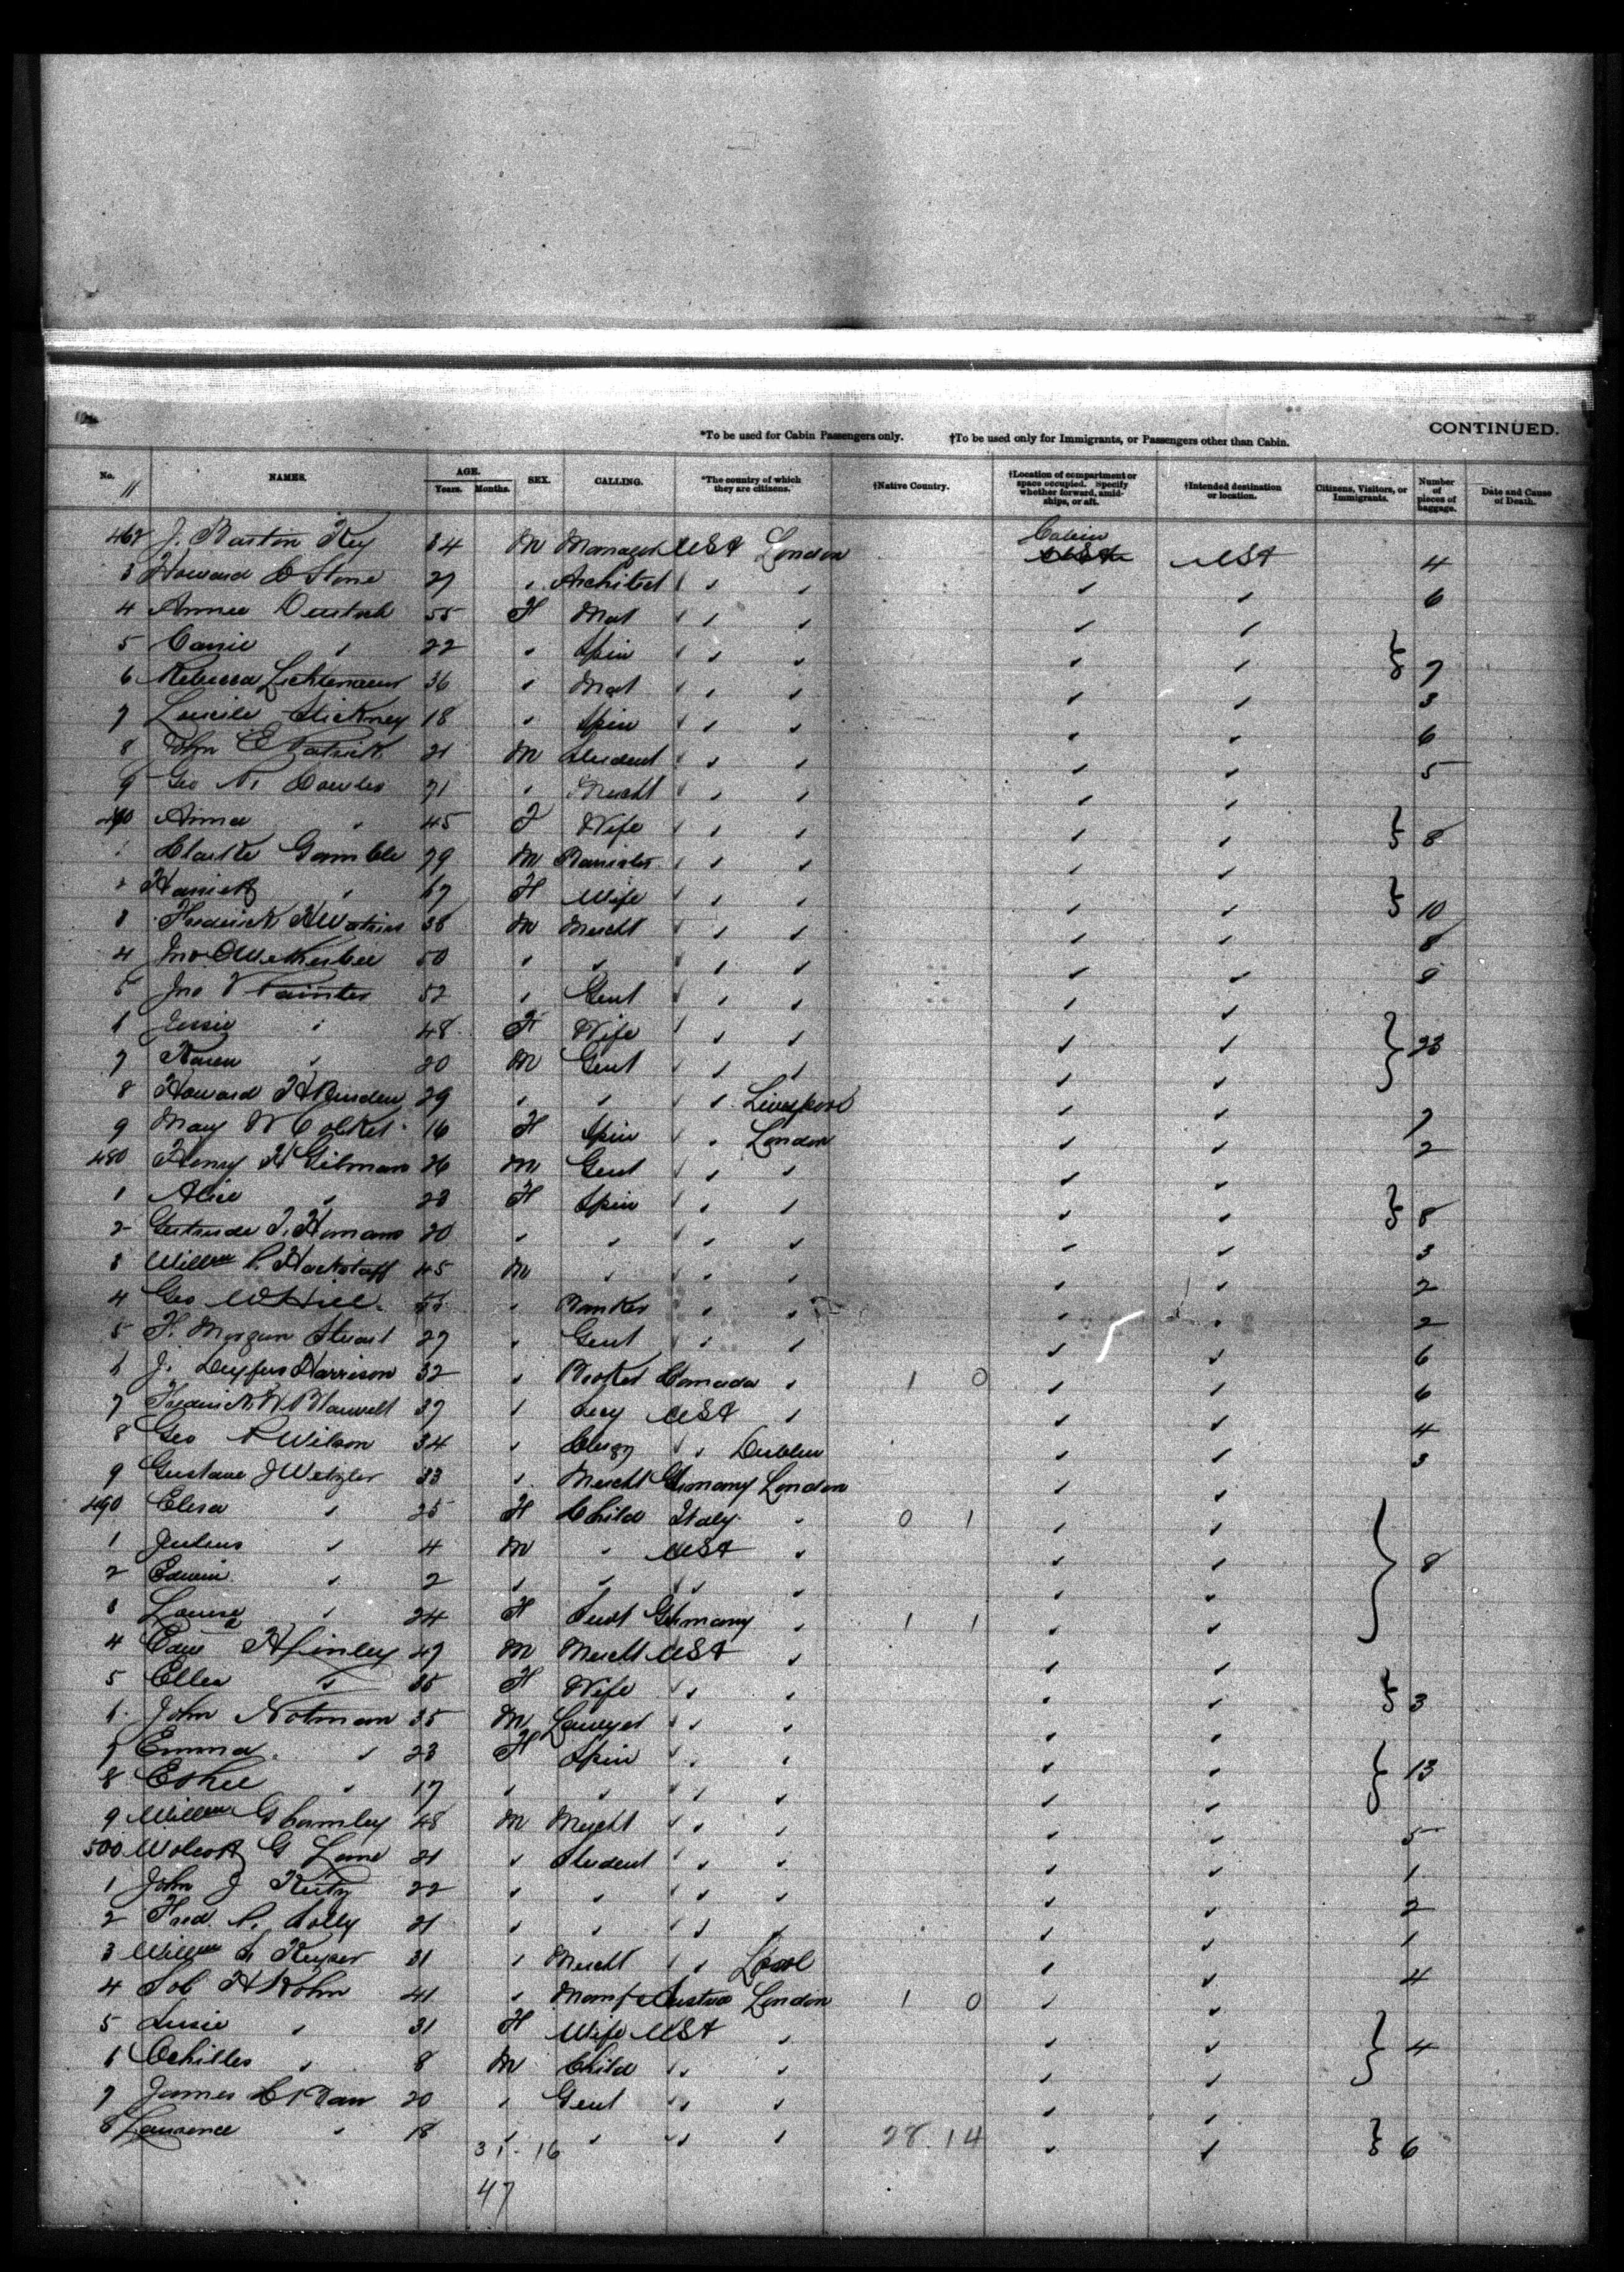 CONTINUED.
*To be used for Cabin Passengers only. †To be used only for Immigrants, or Passengers other than Cabin.
No. NAMES. AGE. Years. Months. SEX. CALLING. *The country of which they are citizens. †Native Country. †Location of compartment or space occupied. Specify whether forward, amidships, or aft. †Intended destination or location. Citizens, Visitors, or Immigrants. Number of pieces of baggage. Date and Cause of Death.
11
462 J. Barton Key 34 M Manager USA London Cabin USA 4
3 Howard C Stone 27 " Architect " " " " 6
4 Annee 55 F Mat " " " "
5 Carrie " 22 " Spin " " " " } 7
6 Rebecca 36 " Mat " " " " 3
7 Lucile Stickney 18 " Spin " " " " 6
8 John E Patrick 21 M Student " " " " 5
9 Geo N Cowles 71 " Mercht " " " "
470 Anna " 45 F Wife " " " " } 8
1 Clarke Gamble 79 M Barrister " " " "
2 Harriett " 67 F Wife " " " " } 10
3 Frederick H Watkins 38 M Mercht " " " " 8
4 Jno O Wetherbee 50 " " " " " "
5 Jno V Painter 52 " Gent " " " "
6 Jessie " 48 F Wife " " " " } 23
7 " 20 M Gent " " " "
8 Howard H 29 " " " Liverpool " " 7
9 May W Colket 16 F Spin " London " " 2
480 Henry H Gilman 26 M Gent " " " "
1 Alice " 23 F Spin " " " " } 8
2 Gertrude T. Homans 20 " " " " " " 3
3 Willm P. Hackstaff 45 M " " " " " 2
4 Geo W Hill 55 " Banker " " " " 2
5 F. Morgan Stuart 27 " Gent " " " " 6
6 J. Harrison 32 " Canada " 1 0 " " 6
7 Frederick W Blauvelt 37 " Secy USA " " " 4
8 Geo R Wilson 34 " Clergy " Dublin " " 3
9 Gustave J Wetzler 33 " Mercht Germany London " "
490 Elisa " 25 F Child Italy " 0 1 " "
1 Julius " 4 M " USA " " " } 8
2 Edwin " 2 " " " " " "
3 Louise " 24 F Servt Germany " 1 1 " "
4 Edw H Finley 47 M Mercht USA " " "
5 Ellen " 35 F Wife " " " " } 3
6 John Notman 35 M Lawyer " " " "
7 Emma " 23 F Spin " " " " } 13
8 " 17 " " " " " "
9 Willm G 48 M Mercht " " " " 5
500 Wolcott G Lane 21 " Student " " " " 1
1 John J 22 " " " " " " 2
2 Fred. P. Solly 21 " " " " " " 1
3 Willm Keyser 31 " Mercht " L'pool " " 4
4 Sol H Kohn 41 " Manf Austria London 1 0 " "
5 Susie " 31 F Wife USA " " " } 4
6 Achilles " 8 M Child " " " "
7 James C 20 " Gent " " " "
8 Laurence " 18 " " " " 28.14 " " } 6
31 - 16
47